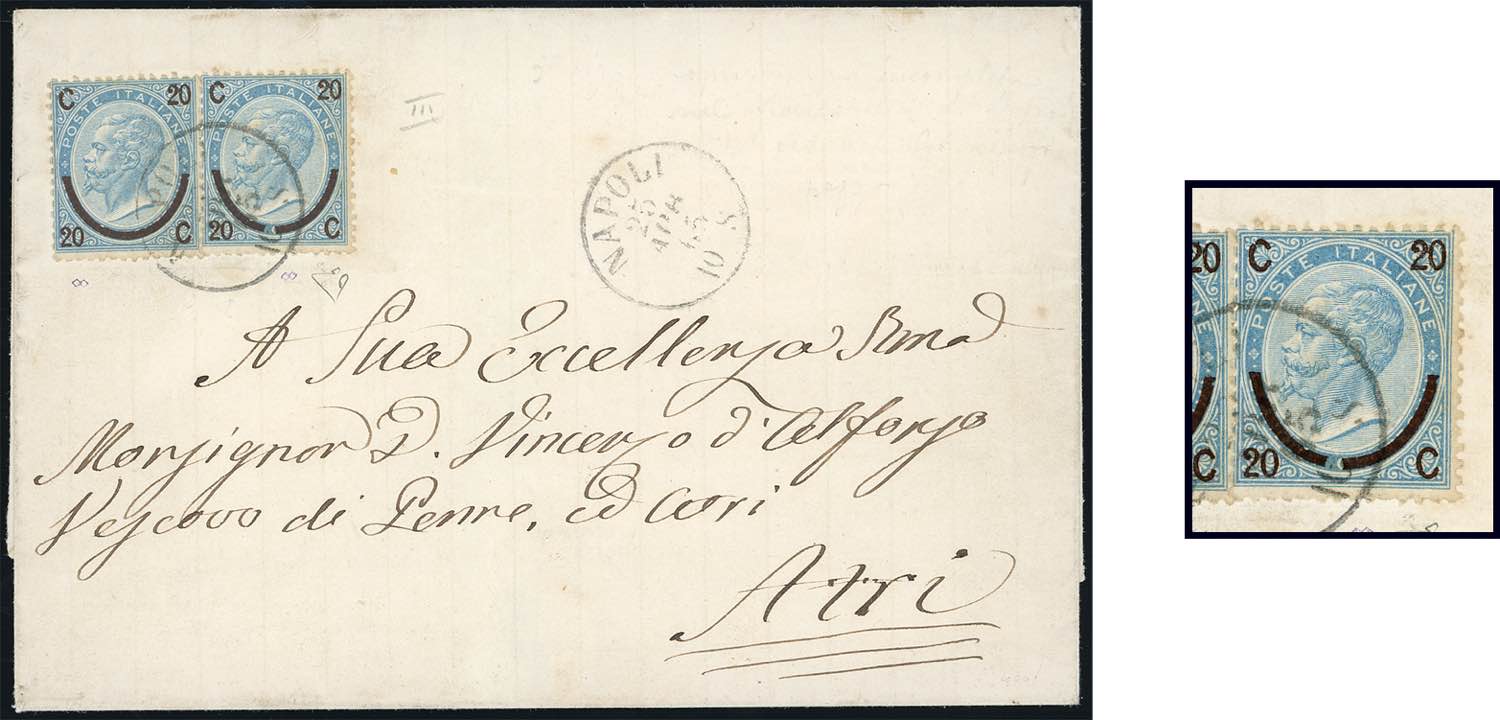 C 20 C 20
POSTE ITALIANE POSTE ITALIANE
20 C 20 C
III
NAPOLI
25
APR
65
10 S
A Sua Eccellenza Rma
Monsignor D. Vincenzo d'Alfonso
Vescovo di Penne, ed Atri
Atri
20 C 20
POSTE ITALIANE
C 20 C